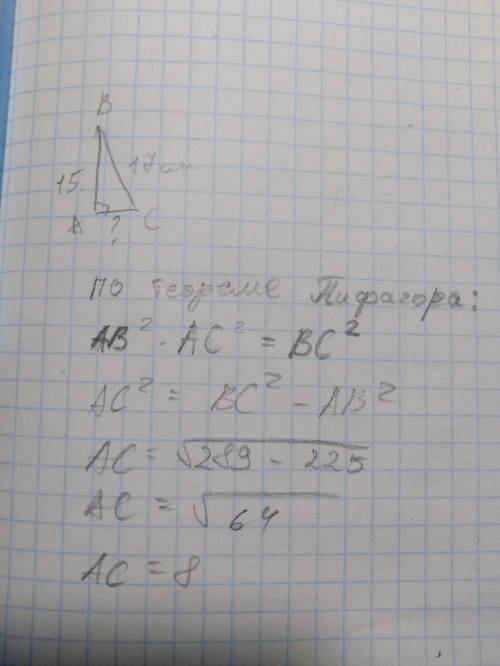 B
15. 17см
A ? C
по теореме Пифагора:
AB² · AC² = BC²
AC² = BC² - AB²
AC = √289 - 225
AC = √64
AC = 8